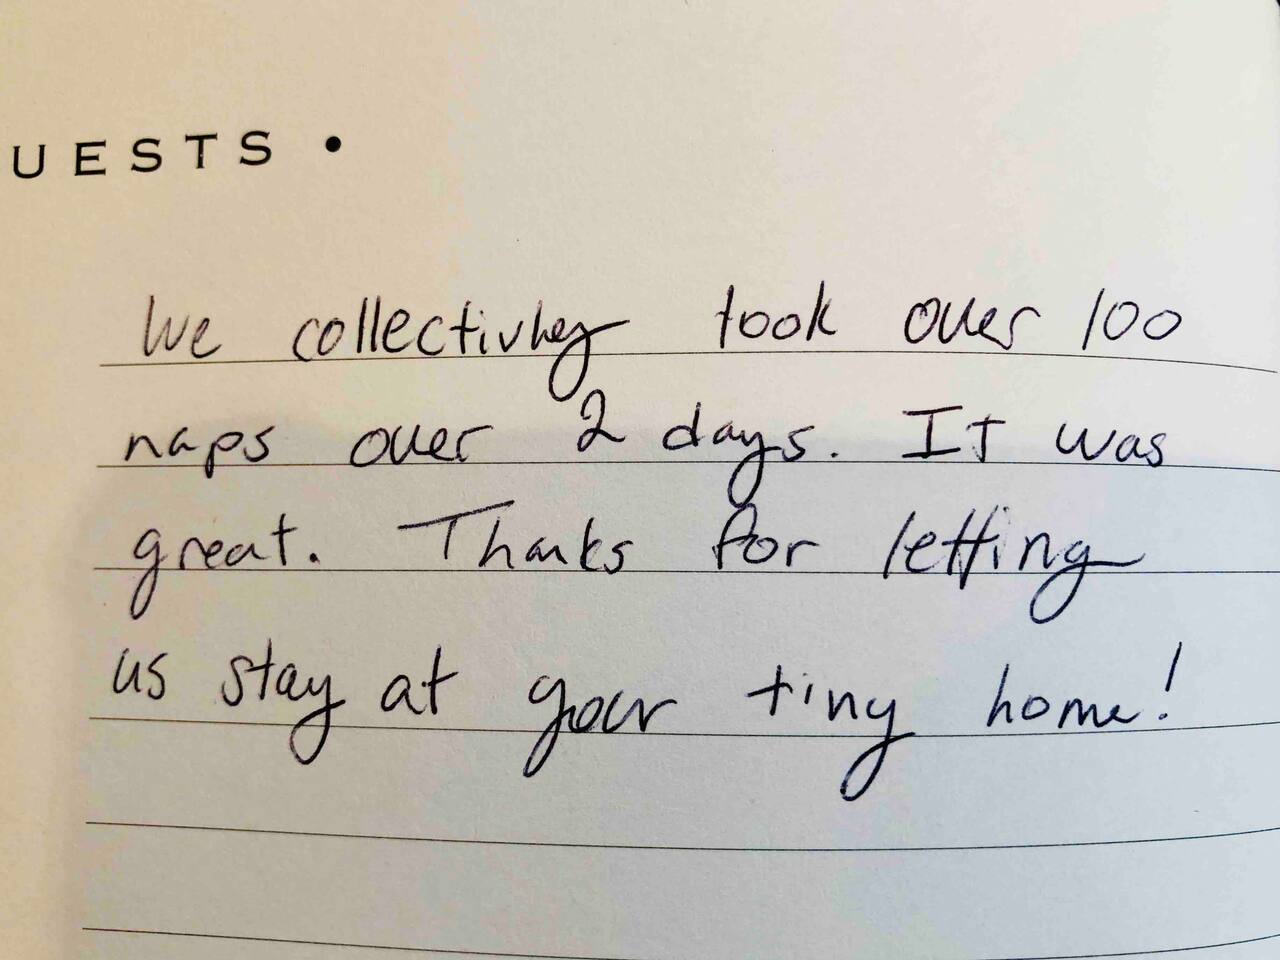 UESTS •
We collectivley took over 100
naps over 2 days. It was
great. Thanks for letting
us stay at your tiny home!